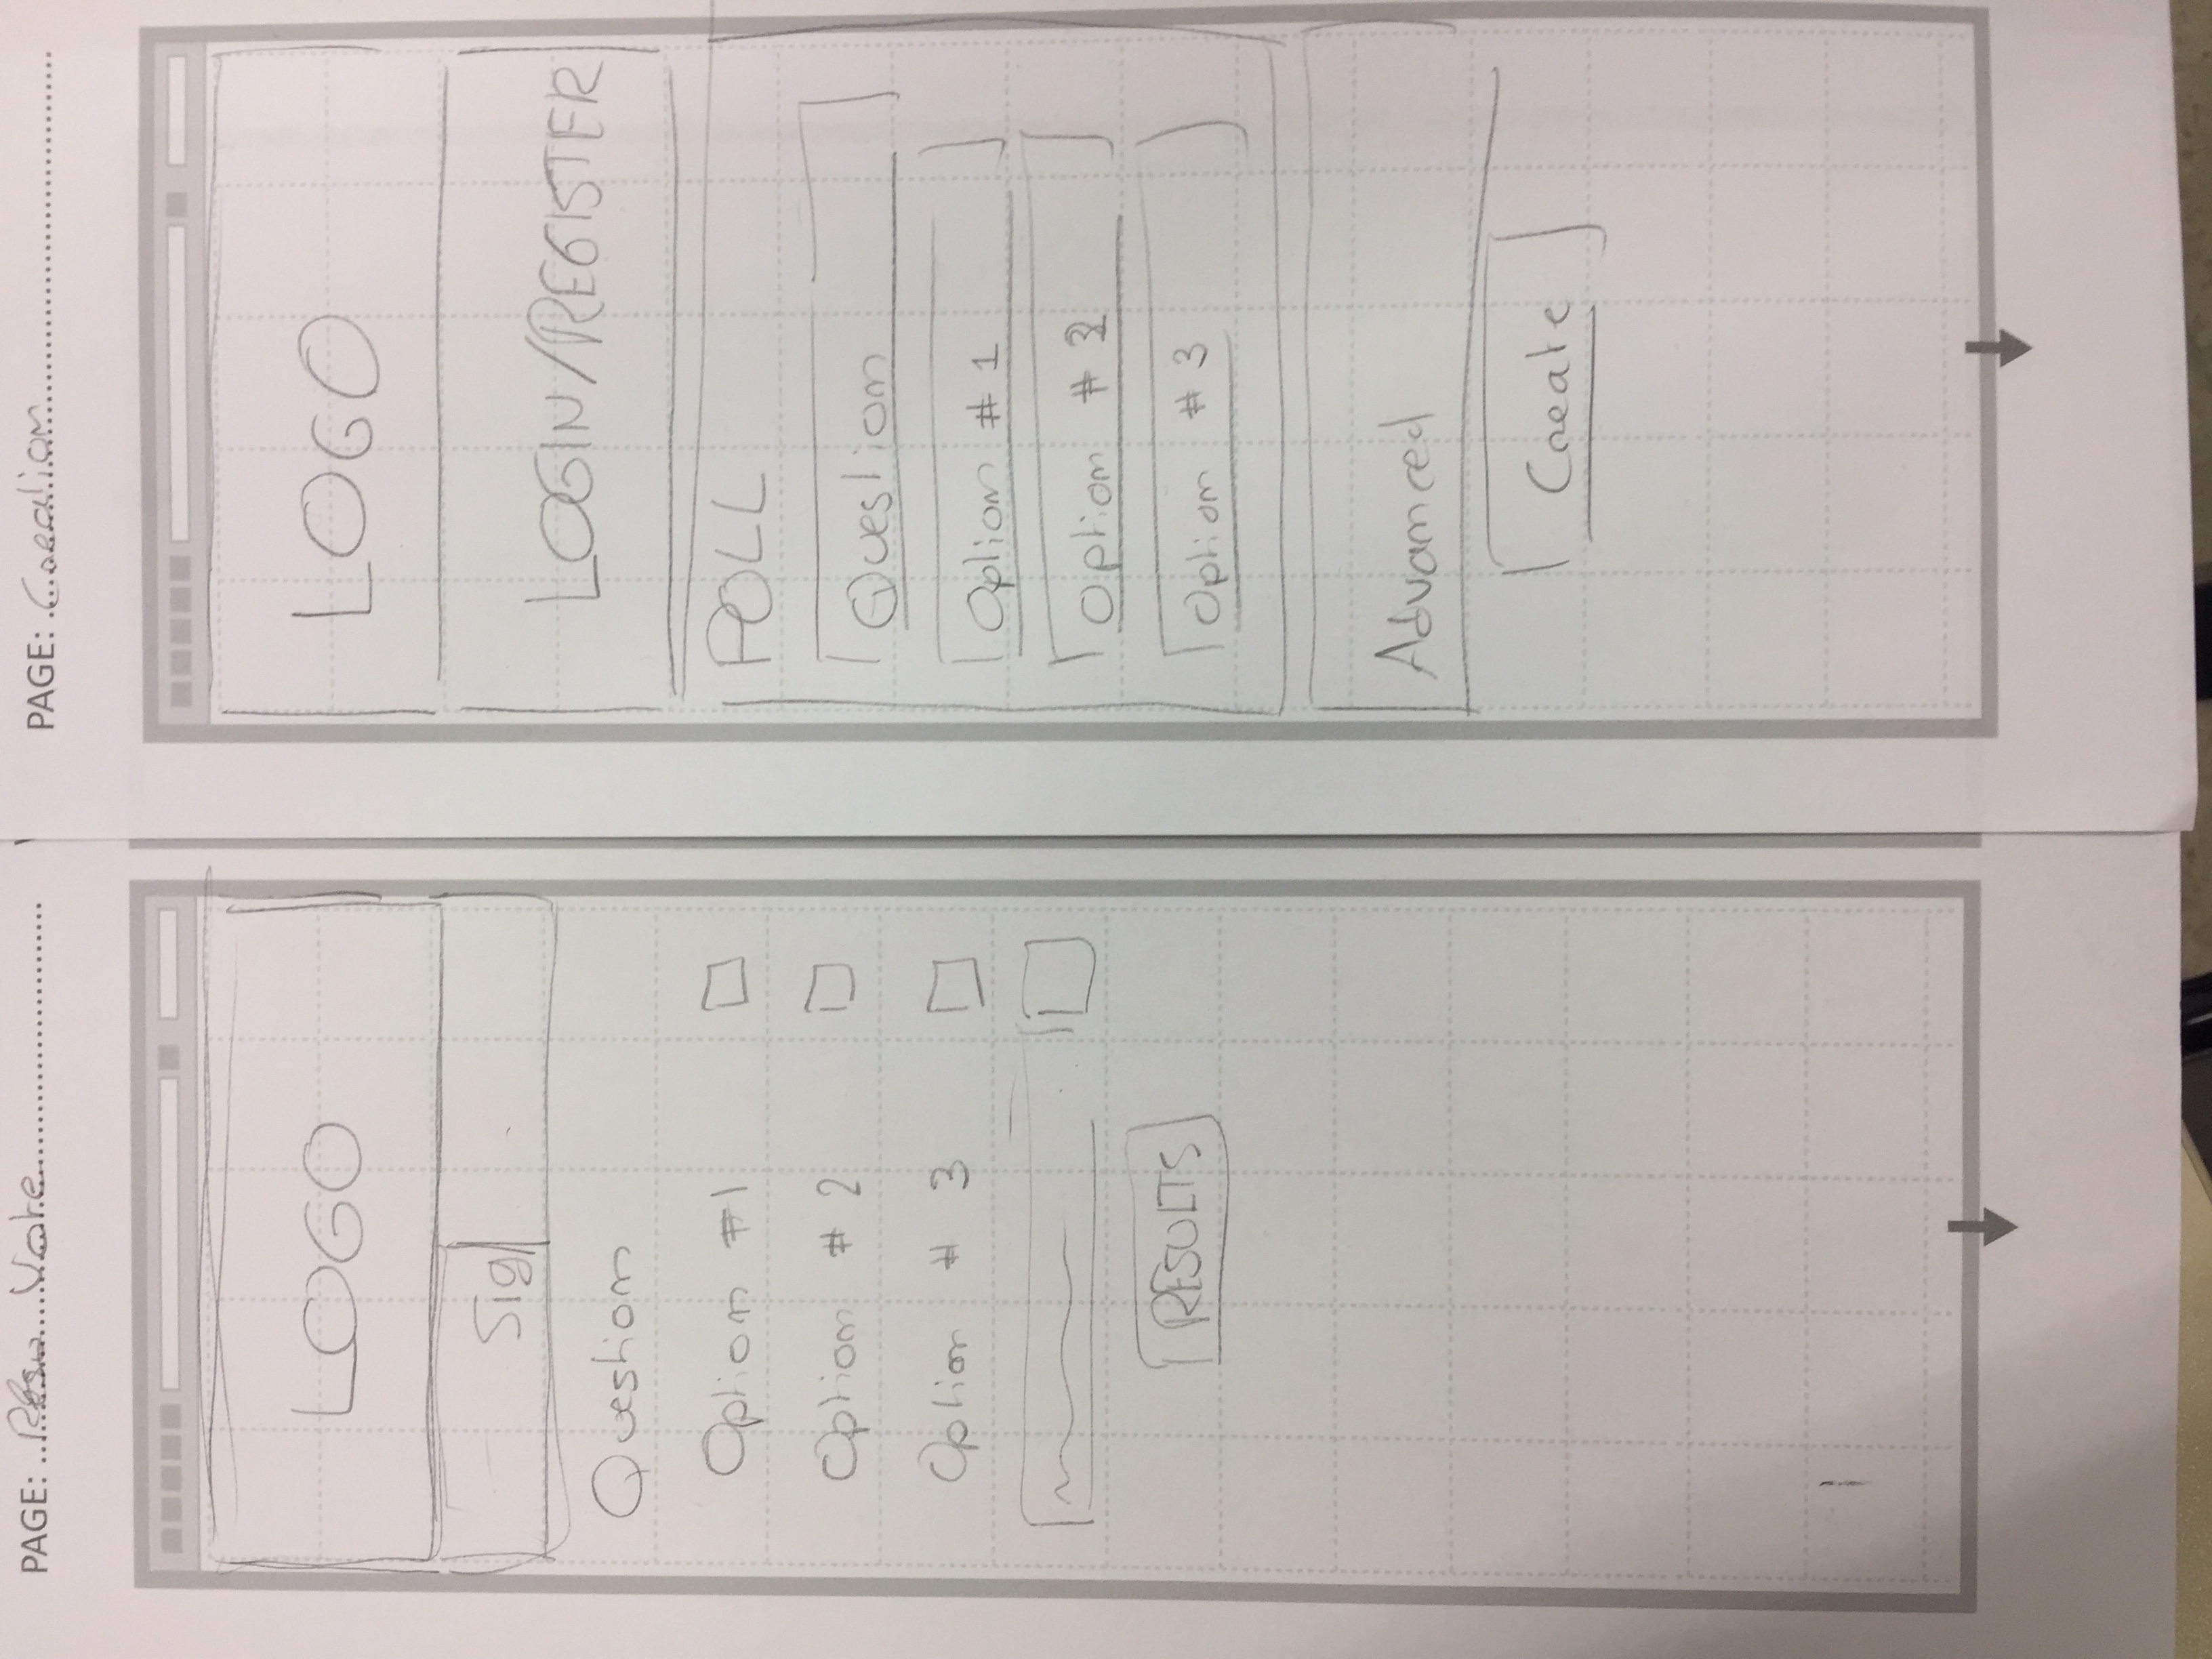 PAGE: Vote
LOGO
Sig
Question
Option #1
Option # 2
Option # 3
RESULTS
PAGE: Creation
LOGO
LOGIN/REGISTER
POLL
Question
Option # 1
Option # 2
Option # 3
Advanced
Create